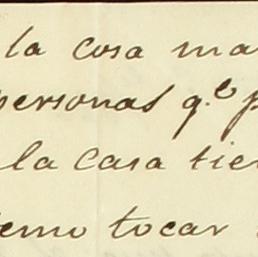 la cosa ma
personas q.e p
la casa tien
temo tocar